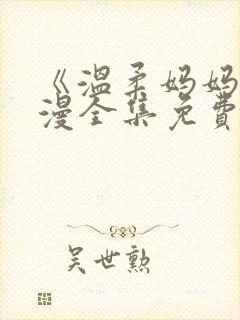 《温柔妈妈
漫全集免費
吴世勲